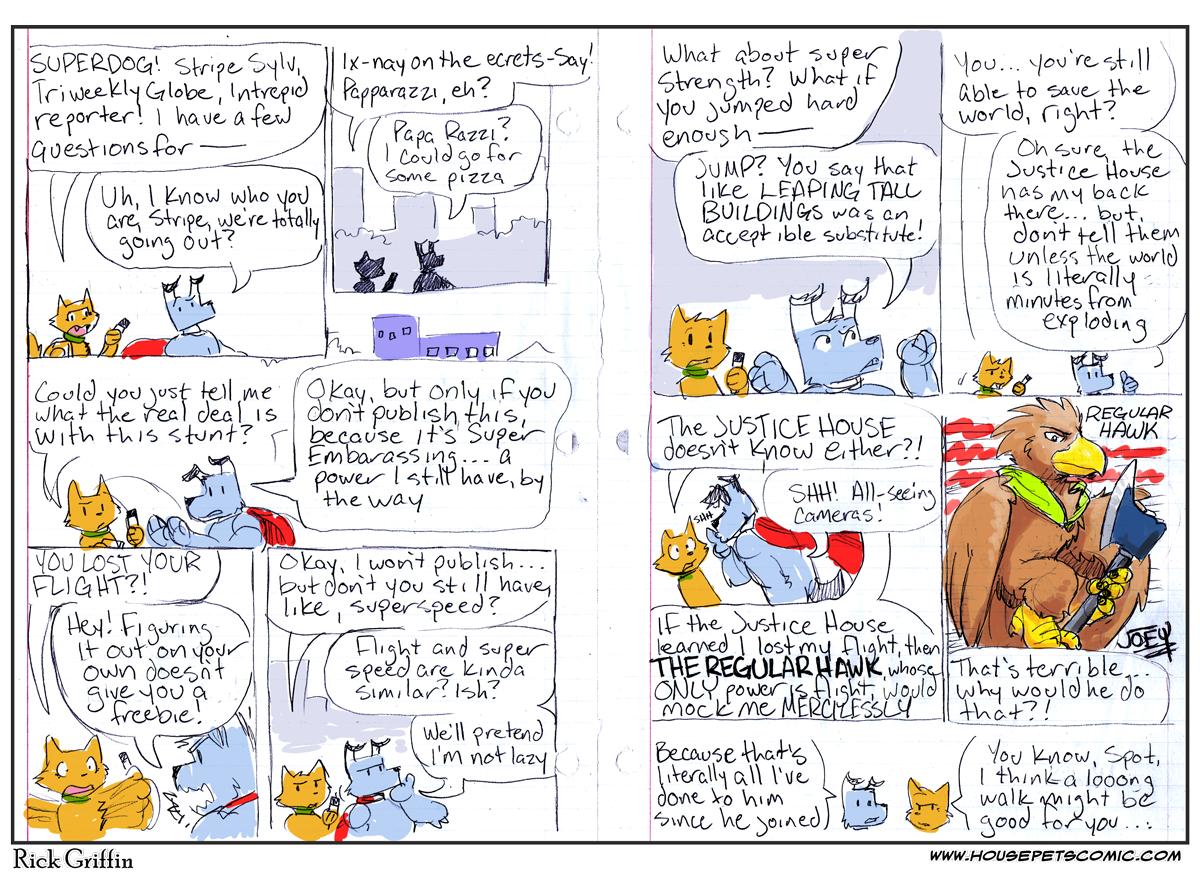 SUPERDOG! Stripe Sylv,
Triweekly Globe, Intrepid
reporter! I have a few
questions for —
Uh, I know who you
are, Stripe, we're totally
going out?
Ix-nay on the ecrets-Say!
Papparazzi, eh?
Papa Razzi?
I could go for
some pizza
Could you just tell me
what the real deal is
with this stunt?
Okay, but only if you
don't publish this,
because it's Super
Embarassing... a
power I still have, by
the way
YOU LOST YOUR
FLIGHT?!
Hey! Figuring
it out on your
own doesn't
give you a
freebie!
Okay, I won't publish...
but don't you still have,
like, superspeed?
Flight and super
speed are kinda
similar? Ish?
We'll pretend
I'm not lazy
What about super
strength? What if
you jumped hard
enough —
JUMP? You say that
like LEAPING TALL
BUILDINGS was an
acceptible substitute!
You... you're still
able to save the
world, right?
Oh sure, the
Justice House
has my back
there... but,
don't tell them
unless the world
is literally
minutes from
exploding
The JUSTICE HOUSE
doesn't know either?!
SHH
SHH! All-seeing
cameras!
If the Justice House
learned I lost my flight, then
THE REGULAR HAWK, whose
ONLY power is flight, would
mock me MERCILESSLY
REGULAR
HAWK
JOEY
That's terrible...
why would he do
that?!
Because that's
literally all I've
done to him
since he joined
You know, Spot,
I think a looong
walk might be
good for you...
Rick Griffin
WWW.HOUSEPETSCOMIC.COM